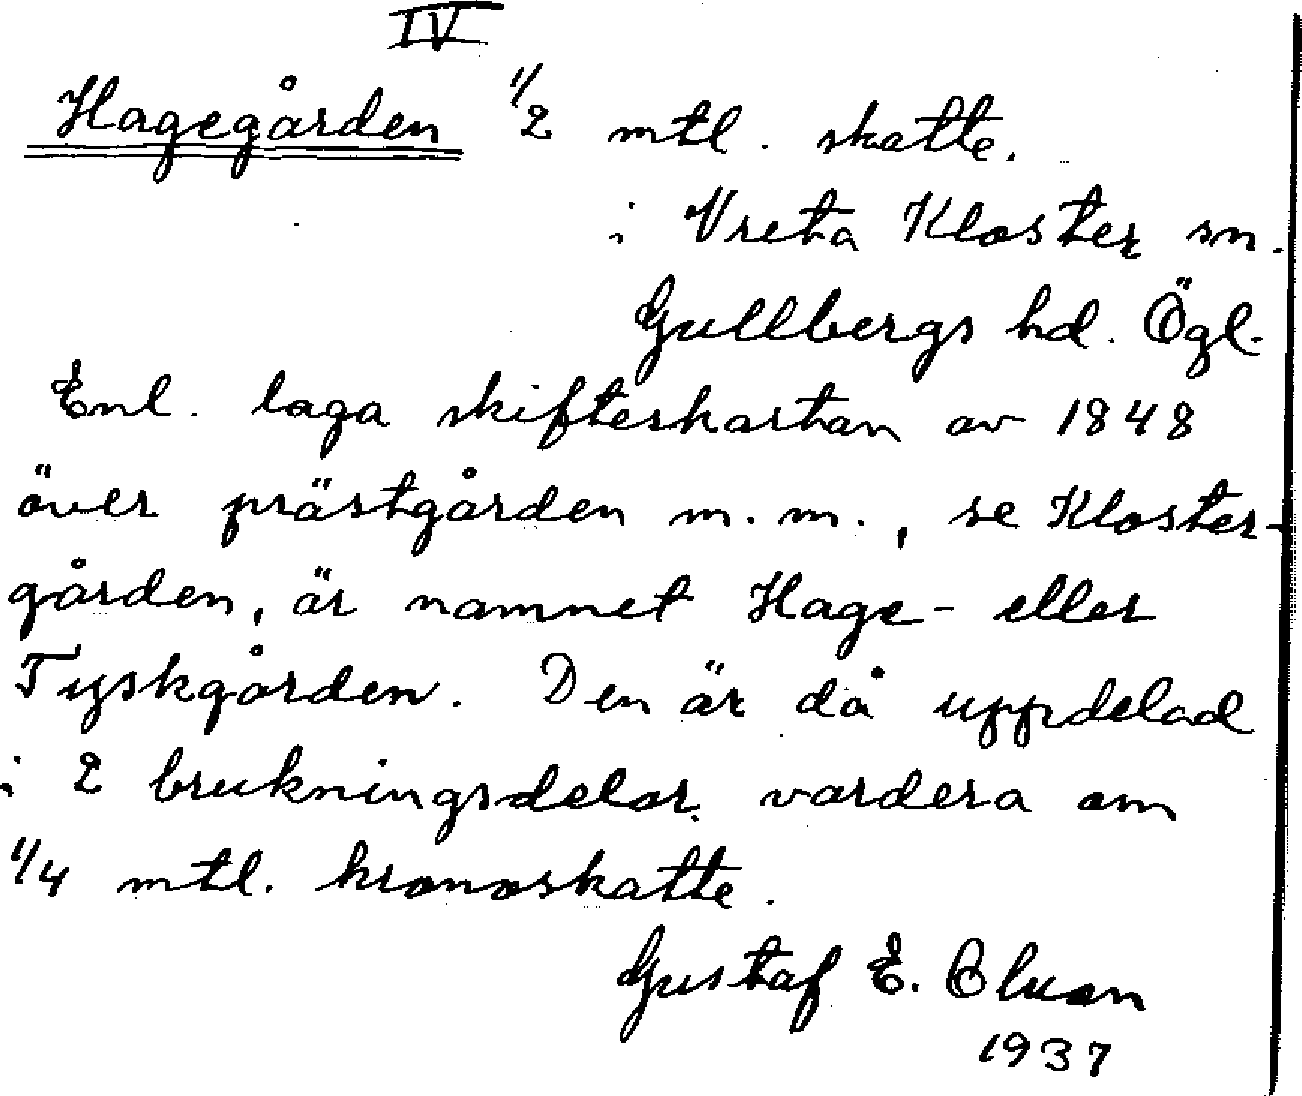 IV
Hagegården 1/2 mtl. skatte.
i Vreta Kloster sn.
Gullbergs hd. Ögl.
Enl. laga skifteskartan av 1848
över prästgården m.m., se Kloster-
gården, är namnet Hage- eller
Tyskgården. Den är då uppdelad
i 2 brukningsdelar vardera om
1/4 mtl. kronoskatte.
Gustaf E.
1937